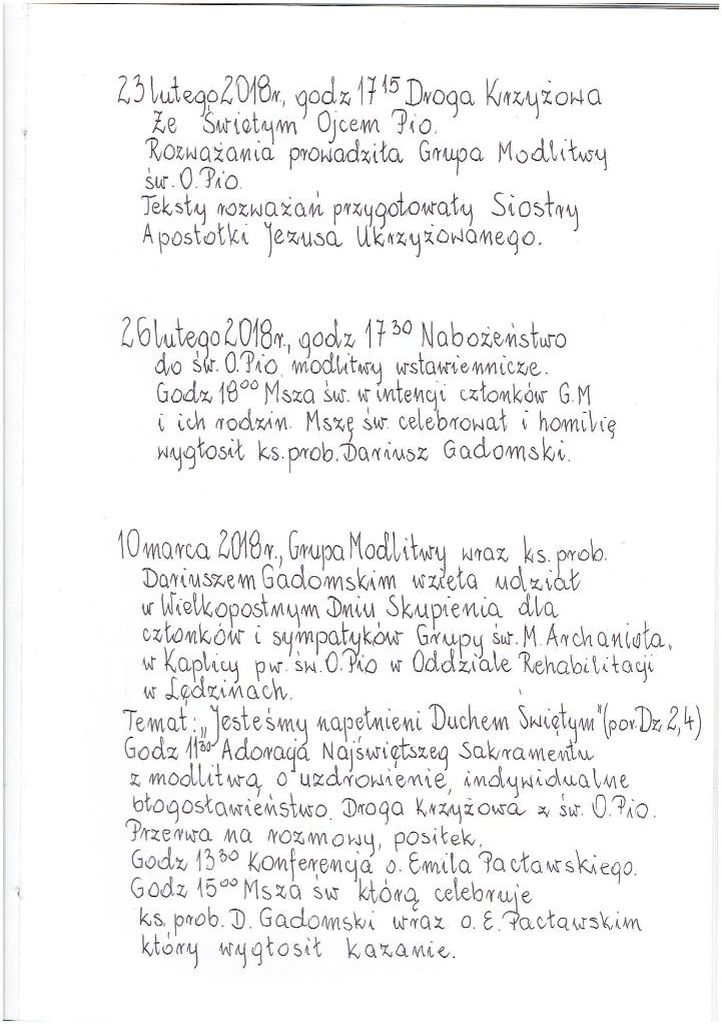 23 lutego 2018r., godz 17¹⁵ Droga Krzyżowa
Ze Świętym Ojcem Pio.
Rozważania prowadziła Grupa Modlitwy
św. O. Pio.
Teksty rozważań przygotowały Siostry
Apostołki Jezusa Ukrzyżowanego.
26 lutego 2018r., godz 17³⁰ Nabożeństwo
do św. O. Pio, modlitwy wstawiennicze.
Godz 18⁰⁰ Msza św. w intencji członków G.M
i ich rodzin. Mszę św. celebrował i homilię
wygłosił ks. prob. Dariusz Gadomski.
10 marca 2018r., Grupa Modlitwy wraz ks. prob.
Dariuszem Gadomskim wzięła udział
w Wielkopostnym Dniu Skupienia dla
członków i sympatyków Grupy św. M. Archanioła,
w Kaplicy pw. św. O. Pio w Oddziale Rehabilitacji
w Lędzinach.
Temat: „Jesteśmy napełnieni Duchem Świętym" (por. Dz 2,4)
Godz 11³⁰ Adoracja Najświętszeg Sakramentu
z modlitwą o uzdrowienie, indywidualne
błogosławieństwo. Droga Krzyżowa z św. O. Pio.
Przerwa na rozmowy, posiłek.
Godz 13³⁰ Konferencja o. Emila Pacławskiego.
Godz 15⁰⁰ Msza św którą celebruje
ks. prob. D. Gadomski wraz o. E. Pacławskim
który wygłosił kazanie.